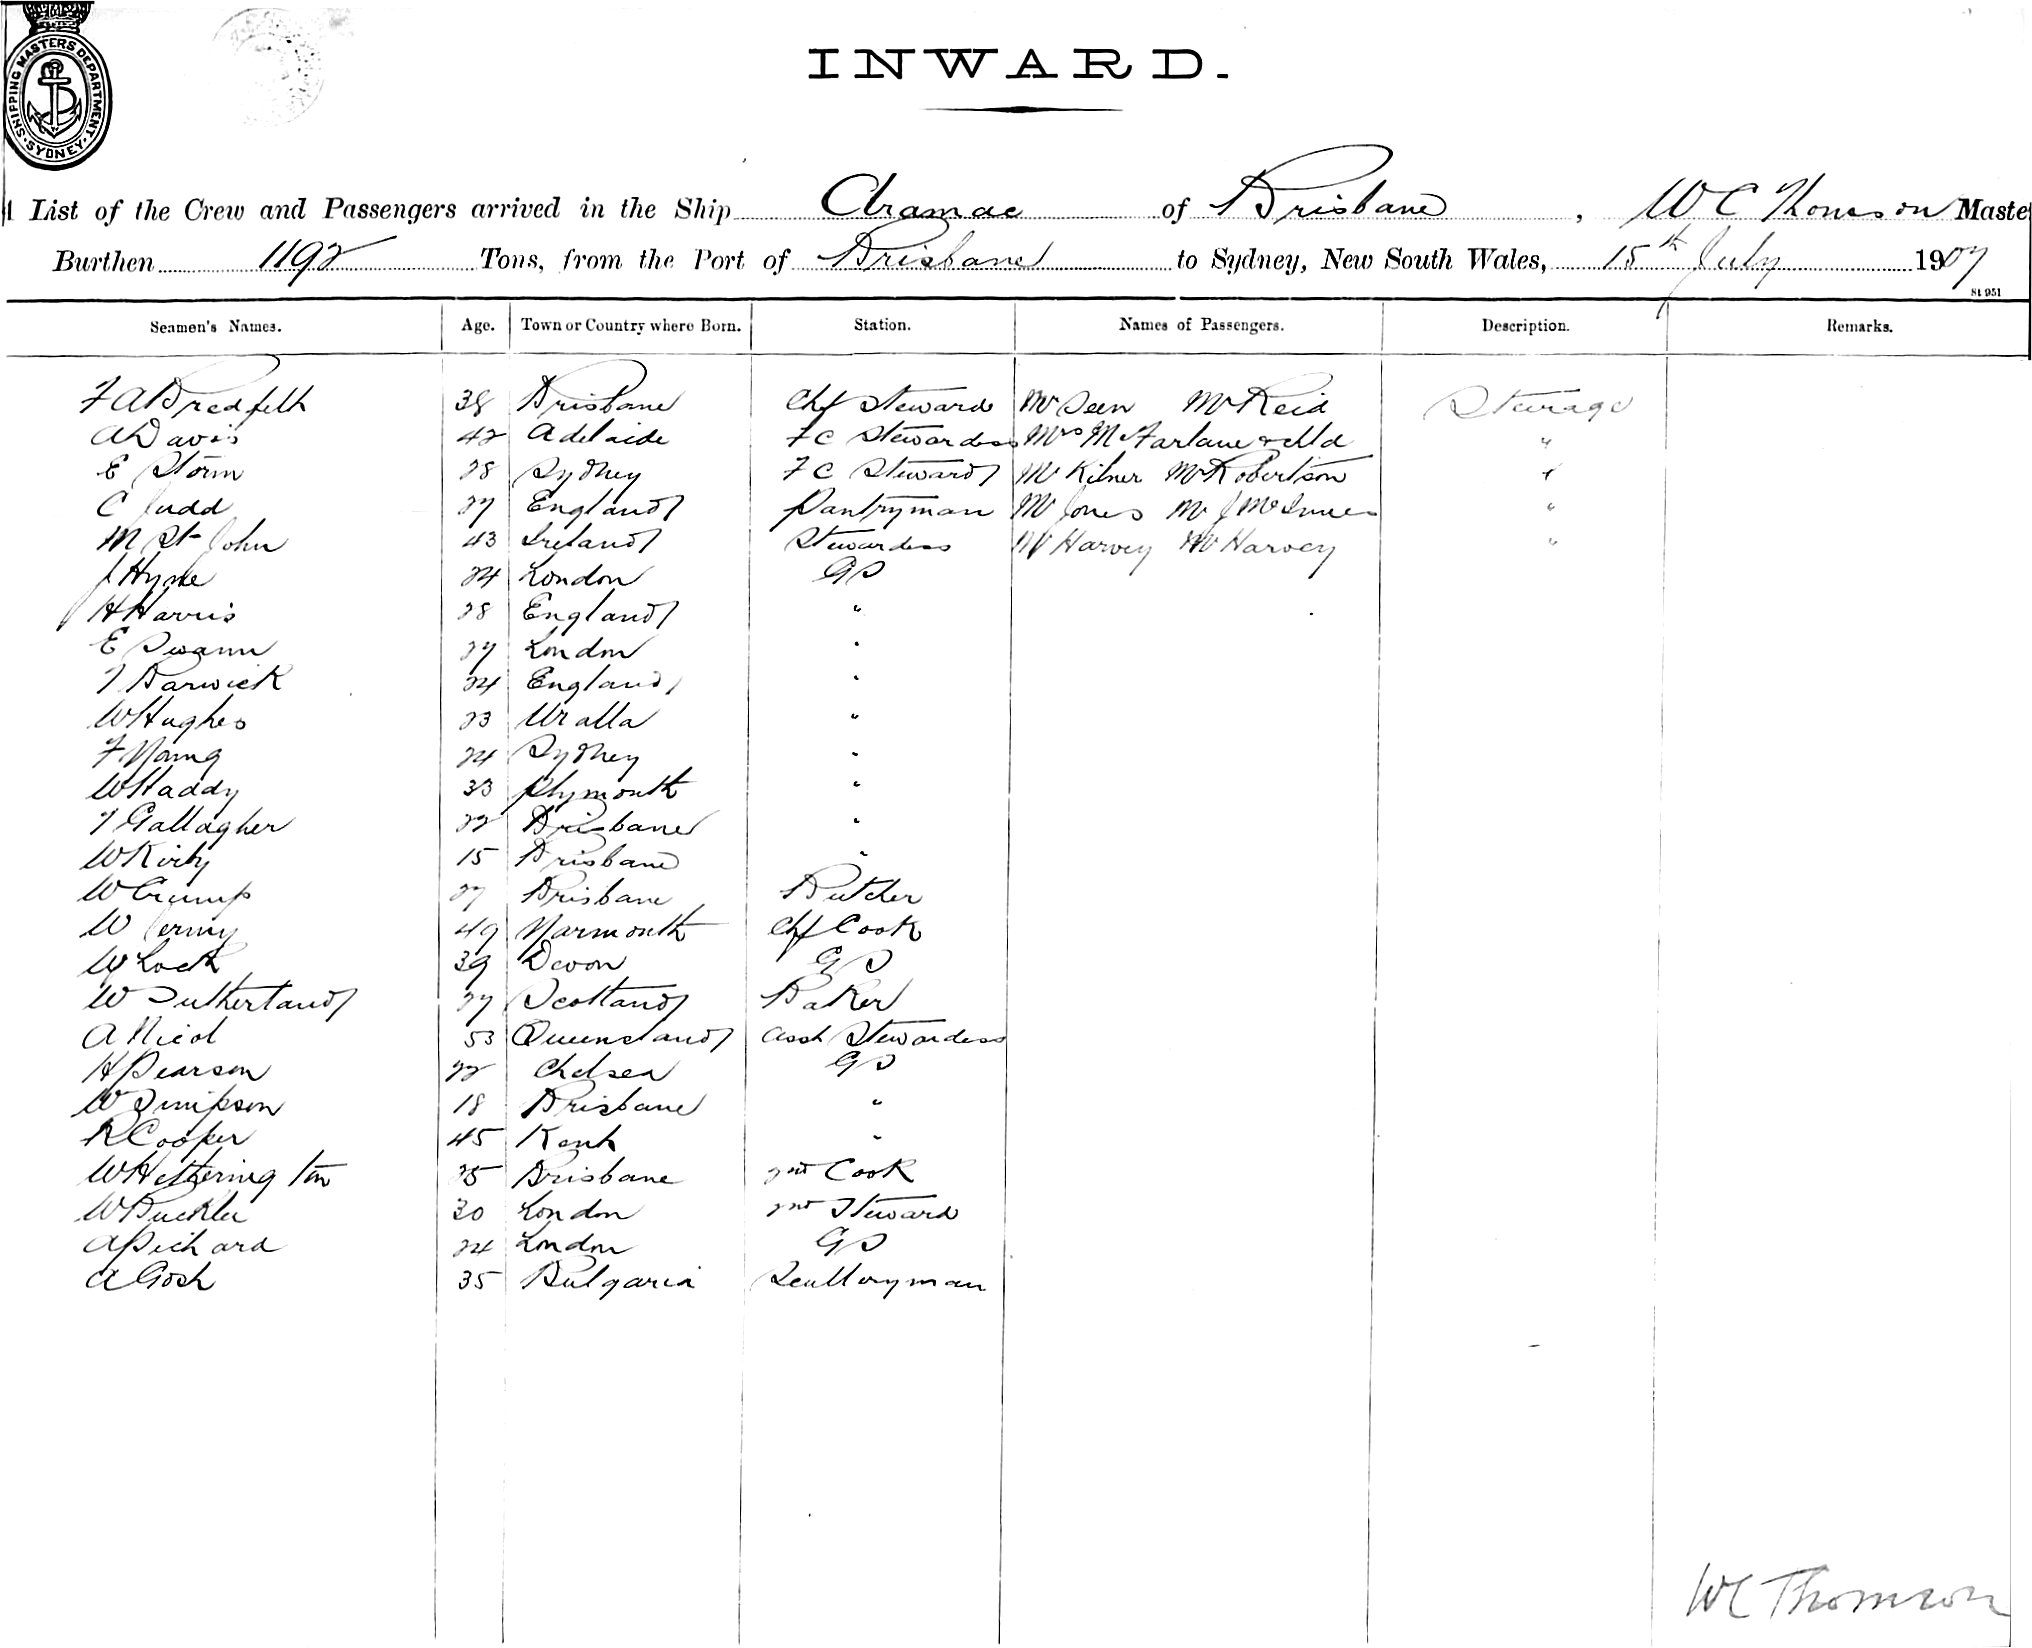 SHIPPING MASTERS DEPARTMENT. SYDNEY.
INWARD.
List of the Crew and Passengers arrived in the Ship Aramac of Brisbane, W C Thomson Maste
Burthen 1192 Tons, from the Port of Brisbane to Sydney, New South Wales, 15th July 1907
St 951
Seamen's Names. Age. Town or Country where Born. Station. Names of Passengers. Description. Remarks.
F A Bredfelt 38 Brisbane Chf Steward Mr Seen Mr Reid Steerage
A Davis 42 Adelaide F C Stewardess Mrs McFarlane & chld "
E Storm 28 Sydney F C Steward Mr Kilner Mr Robertson "
C Judd 27 England Pantryman Mr Jones Mr J McInnes "
M St John 43 Ireland Stewardess Mr Harvey Mr Harvey "
J Hyne 24 London GS
H Harris 28 England "
E Swann 27 London "
T Barwick 24 England "
W Hughes 23 Uralla "
F Young 24 Sydney "
W Haddy 33 Plymouth "
T Gallagher 22 Brisbane "
W Kirby 15 Brisbane "
W Crump 27 Brisbane Butcher
W Jermy 49 Yarmouth Chf Cook
W Lock 39 Devon GS
W Sutherland 27 Scotland Baker
A Nicol 53 Queensland Asst Stewardess
H Pearson 22 Chelsea GS
W Simpson 18 Brisbane "
R Cooper 45 Kent "
W Hetherington 25 Brisbane 2nd Cook
W Buckler 30 London 2nd Steward
A Pichard 24 London GS
A Gosh 35 Bulgaria Sculleryman
W C Thomson